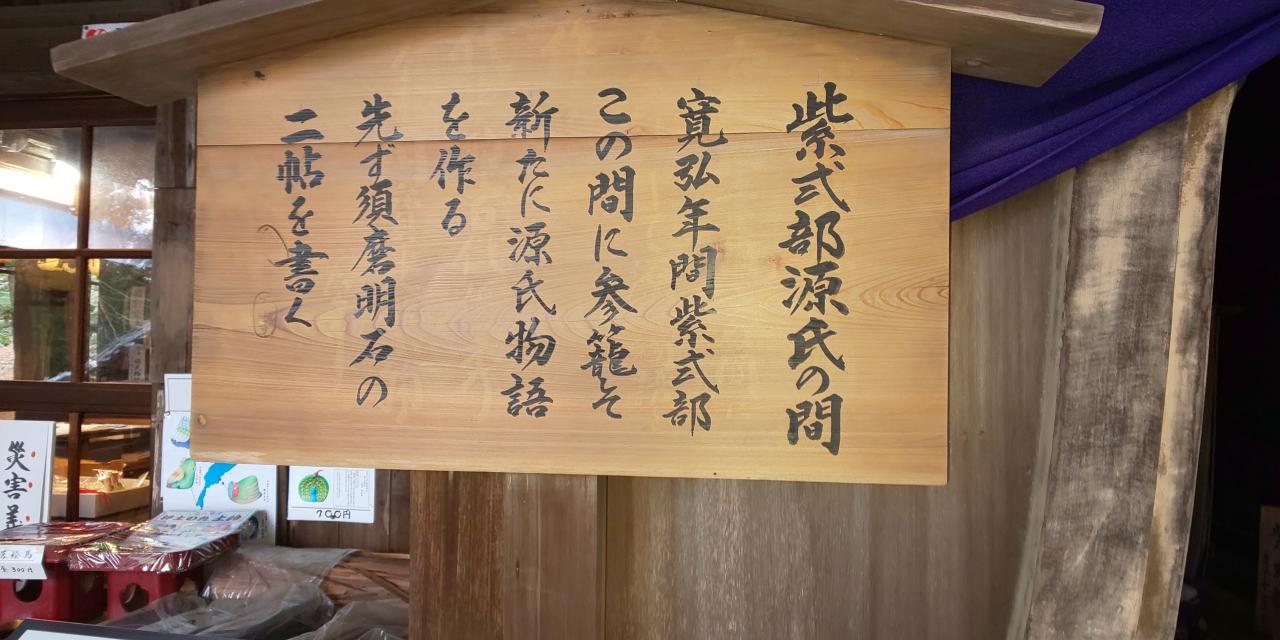 紫式部源氏の間
寛弘年間紫式部
この間に参籠そ
新たに源氏物語
を作る
先ず須磨明石の
二帖を書く
災害義
700円